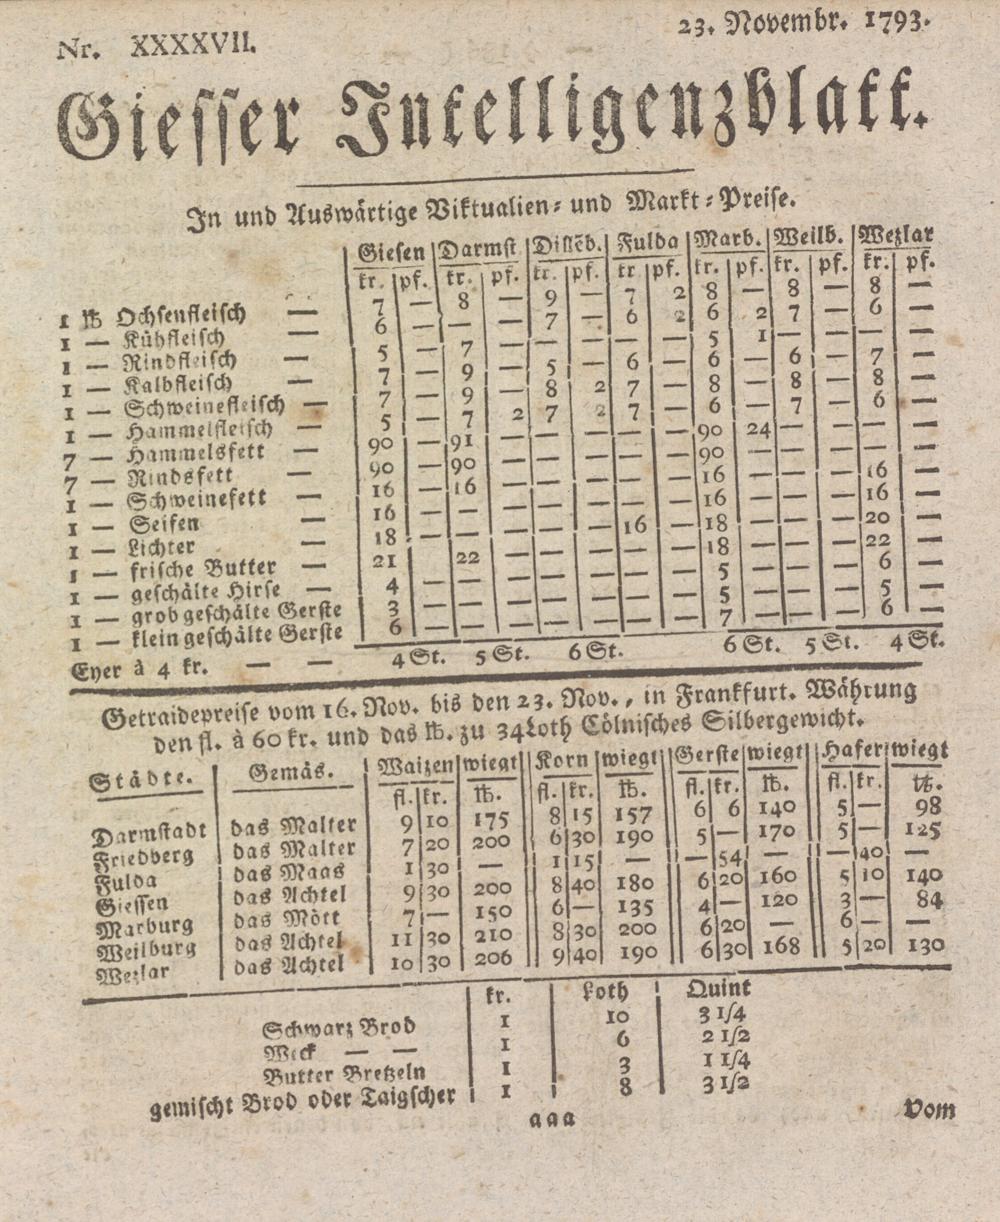 Nr. XXXXVII. 23. Novembr. 1793.
Giesser Intelligenzblatt.
In und Auswärtige Viktualien- und Markt-Preise.
Giesen | Darmst | Dillēb. | Fulda | Marb. | Weilb. | Wezlar
kr. | pf. | kr. | pf. | kr. | pf. | kr | pf. | kr. | pf. | kr. | pf. | kr. | pf.
1 ℔ Ochsenfleisch — 7 | — | 8 | — | 9 | — | 7 | 2 | 8 | — | 8 | — | 8 | —
1 — Kühfleisch — 6 | — | — | — | 7 | — | 6 | 2 | 6 | 2 | 7 | — | 6 | —
1 — Rindfleisch — 5 | — | 7 | — | — | — | — | — | 5 | 1 | — | — | — | —
1 — Kalbfleisch — 7 | — | 9 | — | 5 | — | 6 | — | 6 | — | 6 | — | 7 | —
1 — Schweinefleisch — 7 | — | 9 | — | 8 | 2 | 7 | — | 8 | — | 8 | — | 8 | —
1 — Hammelfleisch — 5 | — | 7 | 2 | 7 | 2 | 7 | — | 6 | — | 7 | — | 6 | —
7 — Hammelsfett — 90 | — | 91 | — | — | — | — | — | 90 | 24 | — | — | — | —
7 — Rindsfett — 90 | — | 90 | — | — | — | — | — | 90 | — | — | — | — | —
1 — Schweinefett — 16 | — | 16 | — | — | — | — | — | 16 | — | — | — | 16 | —
1 — Seifen — 16 | — | — | — | — | — | — | — | 16 | — | — | — | 16 | —
1 — Lichter — 18 | — | — | — | — | — | 16 | — | 18 | — | — | — | 20 | —
1 — frische Butter — 21 | 22 | — | — | — | — | — | 18 | — | — | — | 22 | —
1 — geschälte Hirse — 4 | — | — | — | — | — | — | — | 5 | — | — | — | 6 | —
1 — grob geschälte Gerste 3 | — | — | — | — | — | — | — | 5 | — | — | — | 5 | —
1 — klein geschälte Gerste 6 | — | — | — | — | — | — | — | 7 | — | — | — | 6 | —
Eyer à 4 kr. — — 4 St. 5 St. 6 St. 6 St. 5 St. 4 St.
Getraidepreise vom 16. Nov. bis den 23. Nov., in Frankfurt. Währung
den fl. à 60 kr. und das ℔. zu 34 Loth Cölnisches Silbergewicht.
Städte. | Gemäs. | Waizen | wiegt | Korn | wiegt | Gerste | wiegt | Hafer | wiegt
fl. | kr. | ℔. | fl. | kr. | ℔. | fl. | kr. | ℔. | fl. | kr. | ℔.
Darmstadt | das Malter | 9 | 10 | 175 | 8 | 15 | 157 | 6 | 6 | 140 | 5 | — | 98
Friedberg | das Malter | 7 | 20 | 200 | 6 | 30 | 190 | 5 | — | 170 | 5 | — | 125
Fulda | das Maas | 1 | 30 | — | 1 | 15 | — | — | 54 | — | — | 40 | —
Giessen | das Achtel | 9 | 30 | 200 | 8 | 40 | 180 | 6 | 20 | 160 | 5 | 10 | 140
Marburg | das Mött | 7 | — | 150 | 6 | — | 135 | 4 | — | 120 | 3 | — | 84
Weilburg | das Achtel | 11 | 30 | 210 | 8 | 30 | 200 | 6 | 20 | — | 6 | — | —
Wezlar | das Achtel | 10 | 30 | 206 | 9 | 40 | 190 | 6 | 30 | 168 | 5 | 20 | 130
kr. | Loth | Quint
Schwarz Brod | 1 | 10 | 3 1/4
Weck — — | 1 | 6 | 2 1/2
Butter Bretzeln | 1 | 3 | 1 1/4
gemischt Brod oder Taigscher | 1 | 8 | 3 1/2
aaa Vom